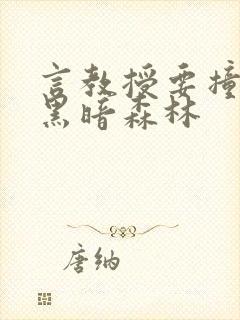 言教授要撞
黑暗森林
唐纳